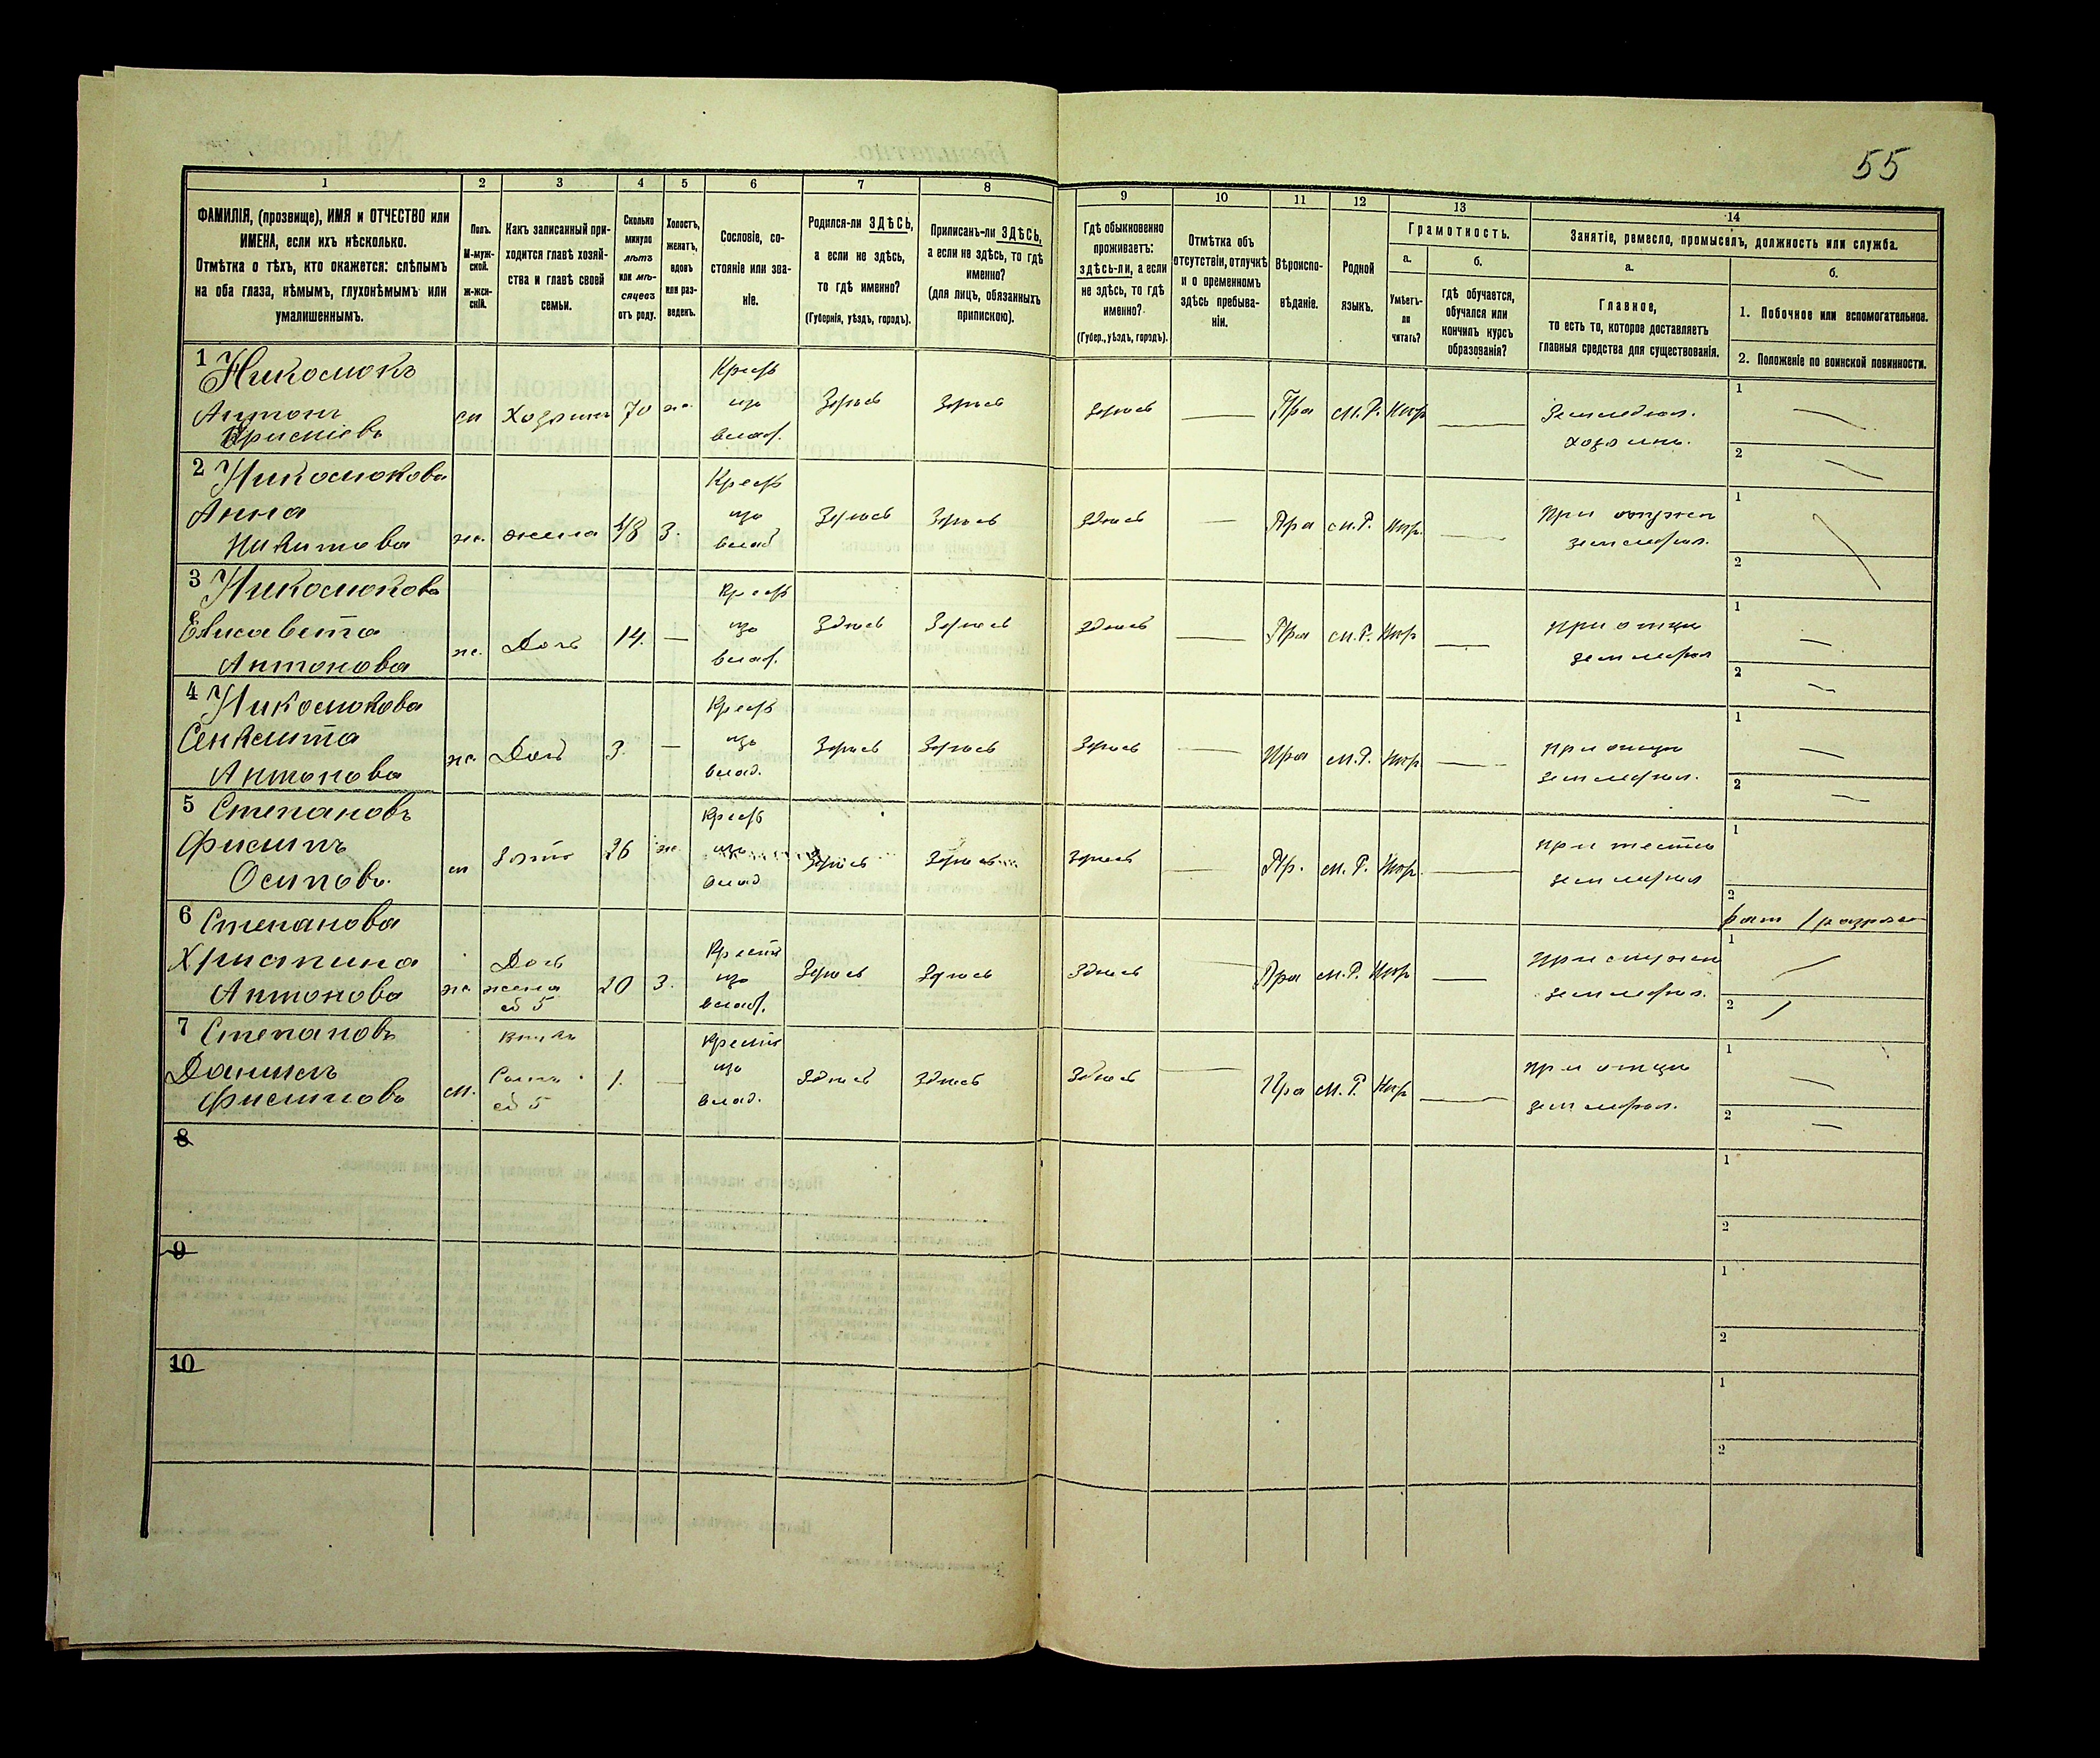 55
1 2 3 4 5 6 7 8 9 10 11 12 13 14
ФАМИЛІЯ, (прозвище), ИМЯ и ОТЧЕСТВО или
ИМЕНА, если ихъ нѣсколько.
Отмѣтка о тѣхъ, кто окажется: слѣпымъ
на оба глаза, нѣмымъ, глухонѣмымъ или
умалишеннымъ.
Полъ.
М-муж-
ской.
ж-жен-
скій.
Какъ записанный при-
ходится главѣ хозяй-
ства и главѣ своей
семьи.
Сколько
минуло
лѣтъ
или мѣ-
сяцевъ
отъ роду.
Холостъ,
женатъ,
вдовъ
или раз-
веденъ.
Сословіе, со-
стояніе или зва-
ніе.
Родился-ли ЗДѢСЬ,
а если не здѣсь,
то гдѣ именно?
(Губернія, уѣздъ, городъ).
Приписанъ-ли ЗДѢСЬ,
а если не здѣсь, то гдѣ
именно?
(для лицъ, обязанныхъ
припискою).
Гдѣ обыкновенно
проживаетъ:
здѣсь-ли, а если
не здѣсь, то гдѣ
именно?
(Губер., уѣздъ, городъ).
Отмѣтка объ
отсутствіи, отлучкѣ
и о временномъ
здѣсь пребыва-
ніи.
Вѣроиспо-
вѣданіе.
Родной
языкъ.
Грамотность.
а.
Умѣетъ-
ли
читать?
б.
гдѣ обучается,
обучался или
кончилъ курсъ
образованія?
Занятіе, ремесло, промыселъ, должность или служба.
а.
Главное,
то есть то, которое доставляетъ
главныя средства для существованія.
б.
1. Побочное или вспомогательное.
2. Положеніе по воинской повинности.
1 Николюкъ
Антонъ
м Хозяинъ 70 ж. Крестъ изъ влад. Здѣсь Здѣсь Здѣсь — Пра М.Р. Нѣтъ — Земледѣл. хозяинъ. 1 — 2 —
2 Николюкова
Анна
Никитова
ж. жена 48 З. Крестъ изъ влад Здѣсь Здѣсь Здѣсь — Пра М.Р. Нѣтъ. — При супруг земледѣл. 1 2
3 Николюкова
Елисавета
Антонова
ж. Дочь 14. — Крестъ изъ влад. Здѣсь Здѣсь Здѣсь — Пра М.Р. Нѣтъ — при отцѣ земледѣл 1 — 2 —
4 Николюкова
Антонова
ж. Дочь 3. — Крестъ изъ влад. Здѣсь Здѣсь Здѣсь — Пра М.Р. Нѣтъ — при отцѣ земледѣл. 1 — 2 —
5 Степановъ
Филипъ
Осиповъ.
м Зять 26 ж Крестъ изъ влад Здѣсь Здѣсь Здѣсь — Пр. М.Р. Нѣтъ. — при тестѣ земледѣл 1 2 рат 1 разряда
6 Степанова
Христина
Антонова
ж. Дочь жена об 5 20 З. Крестъ изъ влад. Здѣсь Здѣсь Здѣсь — Пра М.Р. Нѣтъ — при супруг земледѣл. 1 — 2 —
7 Степановъ
Данилъ
Филиповъ
м. внукъ Сынъ об 5 1. — Крестъ изъ влад. Здѣсь Здѣсь Здѣсь — Пра М.Р. Нѣтъ — при отцѣ земледѣл. 1 — 2 —
8 1 2
9 1 2
10 1 2